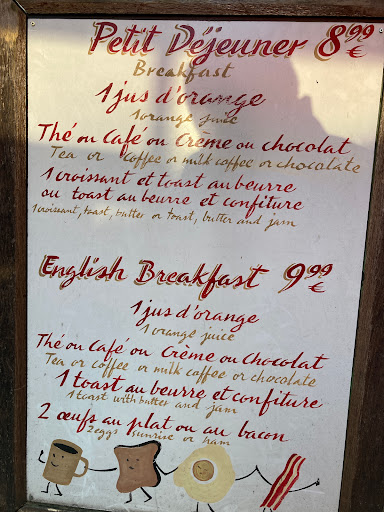 Petit Déjeuner 8€99
Breakfast
1 jus d'orange
1 orange juice
Thé ou Café ou Crème ou chocolat
Tea or coffee or milk coffee or chocolate
1 croissant et toast au beurre
ou toast au beurre et confiture
1 croissant, toast, butter or toast, butter and jam
English Breakfast 9€99
1 jus d'orange
1 orange juice
Thé ou Café ou Crème ou Chocolat
Tea or coffee or milk coffee or chocolate
1 toast au beurre et confiture
1 toast with butter and jam
2 œufs au plat ou au bacon
2 eggs sunrise or ham